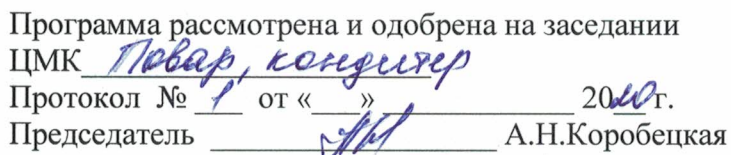 Программа рассмотрена и одобрена на заседании
ЦМК Повар, кондитер
Протокол № 1 от «___»______________ 2020г.
Председатель ________________ А.Н.Коробецкая